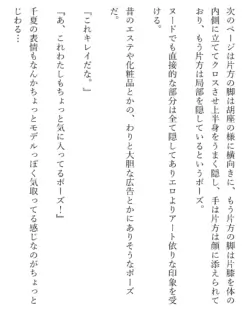 次のページは片方の脚は胡座の様に横向きに、もう片方は片膝を体の
内側に立ててクロスさせ上半身をうまく隠し、手は片方は顔に添えられて
おり、もう片方は局部を隠しているというポーズ。
ヌードでも直接的な部分は全て隠してありエロよりアート依りな印象を受
ける。
昔のエステや化粧品とかの、わりと大胆な広告とかにありそうなポーズ
だ。
「これキレイだな。」
「あ、これわたしもちょっと気に入ってるポーズ！」
千夏の表情もなんかちょっとモデルっぽく気取ってる感じなのがちょっと
じわる…。